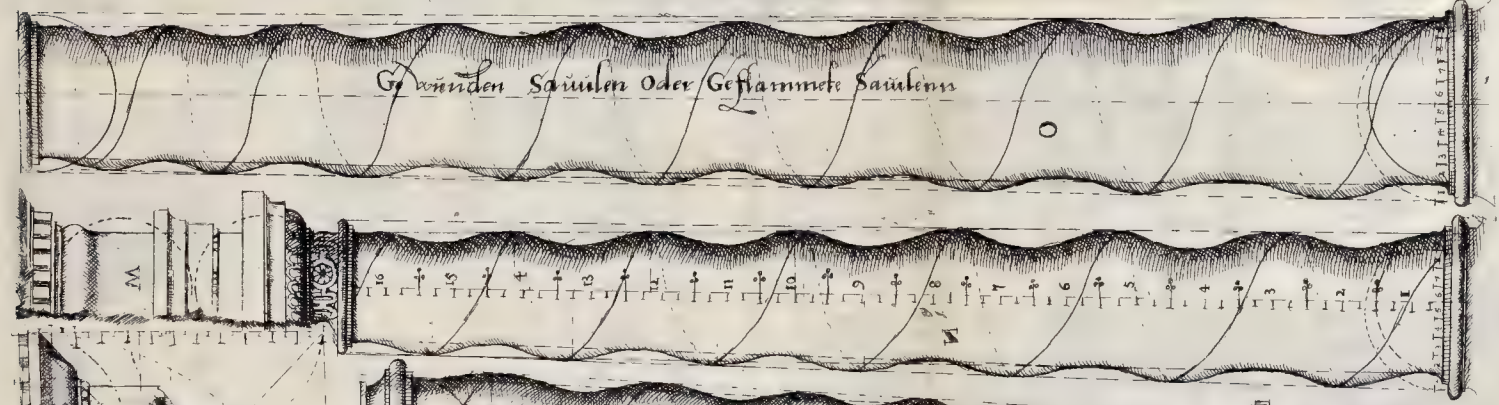 Gewunden Sauulen Oder Geflammete Saulenn
O
M
16 15 14 13 12 11 10 9 8 7 6 5 4 3 2 1
N